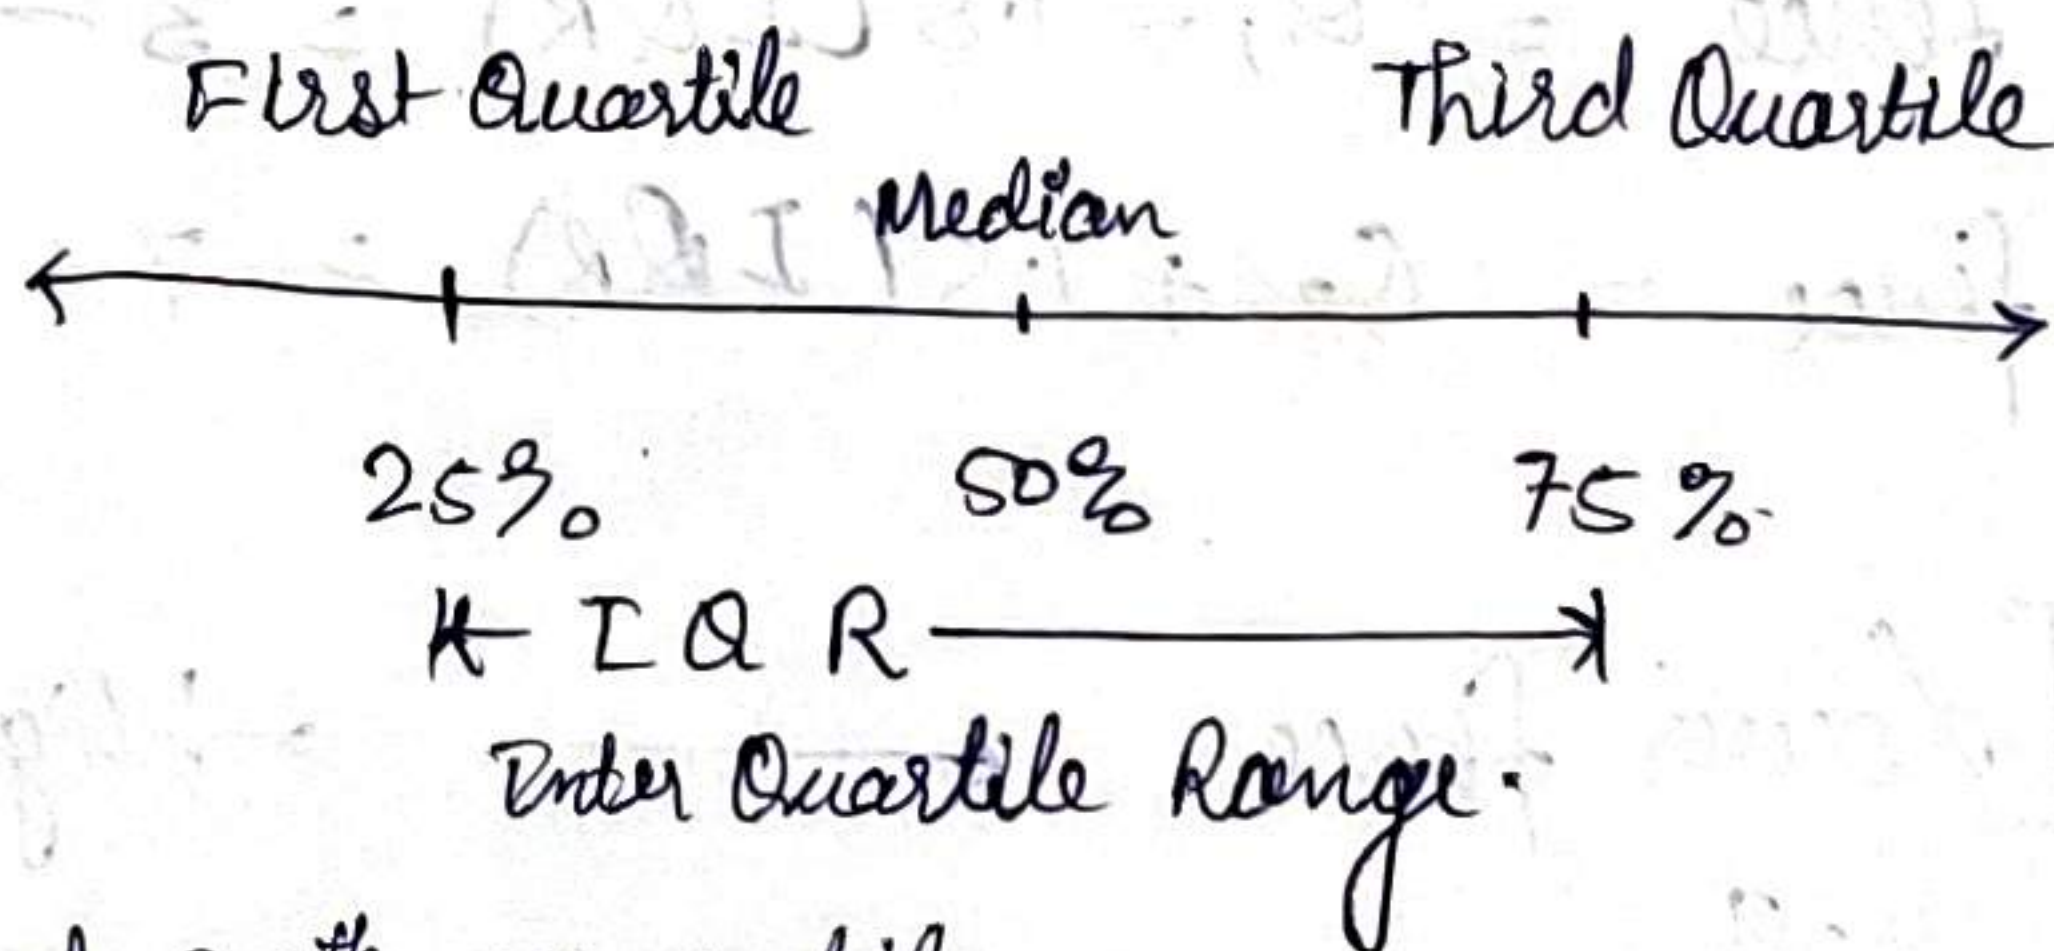 First Quartile Third Quartile
Median
25% 50% 75%
I Q R
Inter Quartile Range.